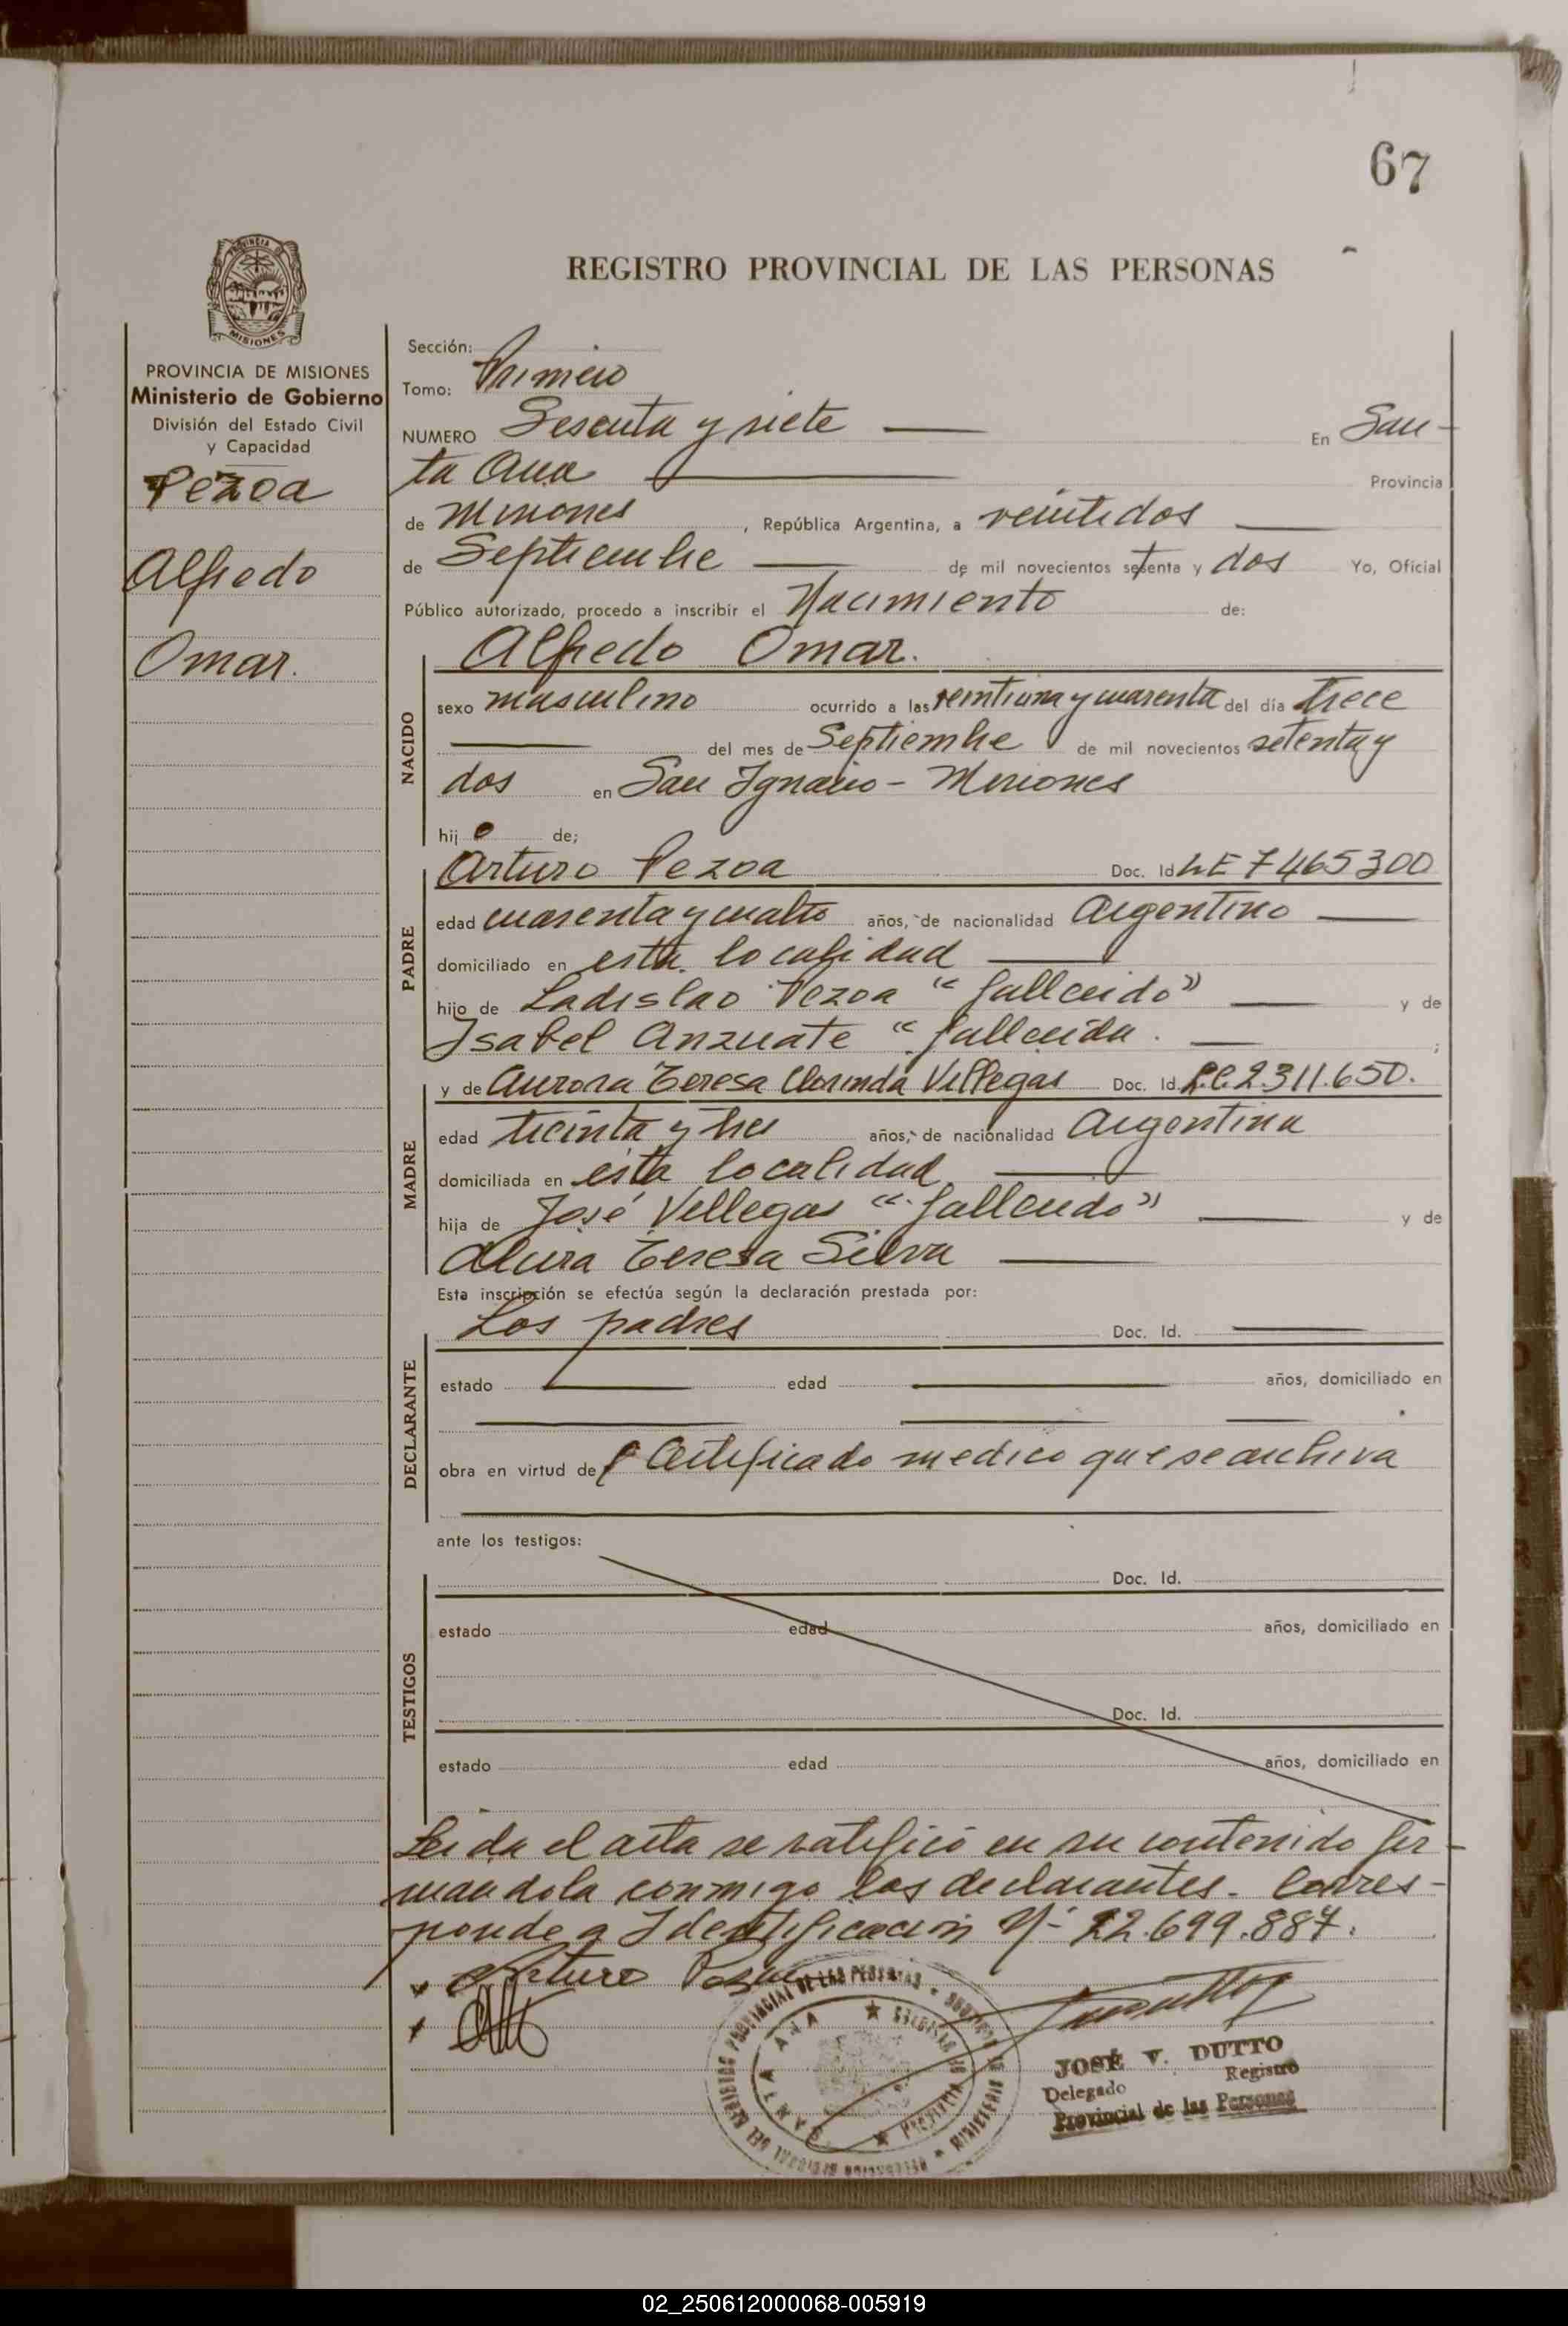 67
REGISTRO PROVINCIAL DE LAS PERSONAS
PROVINCIA DE MISIONES
Ministerio de Gobierno
División del Estado Civil
y Capacidad
Pezoa
Alfredo
Omar.
Sección:
Tomo: Primero
NUMERO Sesenta y siete En San-
ta Ana Provincia
de Misiones, República Argentina, a veintidos
de Septiembre de mil novecientos setenta y dos Yo, Oficial
Público autorizado, procedo a inscribir el Nacimiento de:
NACIDO
Alfredo Omar.
sexo masculino ocurrido a las veintiuna y cuarenta del día trece
del mes de Septiembre de mil novecientos setenta y
dos en San Ignacio - Misiones
hijo de;
PADRE
Arturo Pezoa Doc. Id. LE 7465300
edad cuarenta y cuatro años, de nacionalidad Argentino
domiciliado en esta localidad
hijo de Ladislao Pezoa "fallecido" y de
Isabel Anzuate "fallecida. ;
MADRE
y de Aurora Teresa Clorinda Villegas Doc. Id. L.C. 2.311.650.
edad treinta y tres años, de nacionalidad Argentina
domiciliada en esta localidad
hija de José Villegas "fallecido" y de
Teresa Silva
Esta inscripción se efectúa según la declaración prestada por:
DECLARANTE
Los padres Doc. Id.
estado edad años, domiciliado en
obra en virtud de Certificado medico que se archiva
ante los testigos:
TESTIGOS
Doc. Id.
estado edad años, domiciliado en
Doc. Id.
estado edad años, domiciliado en
Leida el acta se ratificó en su contenido fir-
mandola conmigo los declarantes. Corres-
ponde a Identificacion Nº 22.699.887.
Arturo Pezoa
SANTA ANA
JOSÉ V. DUTTO
Delegado Registro
Provincial de las Personas
02_250612000068-005919